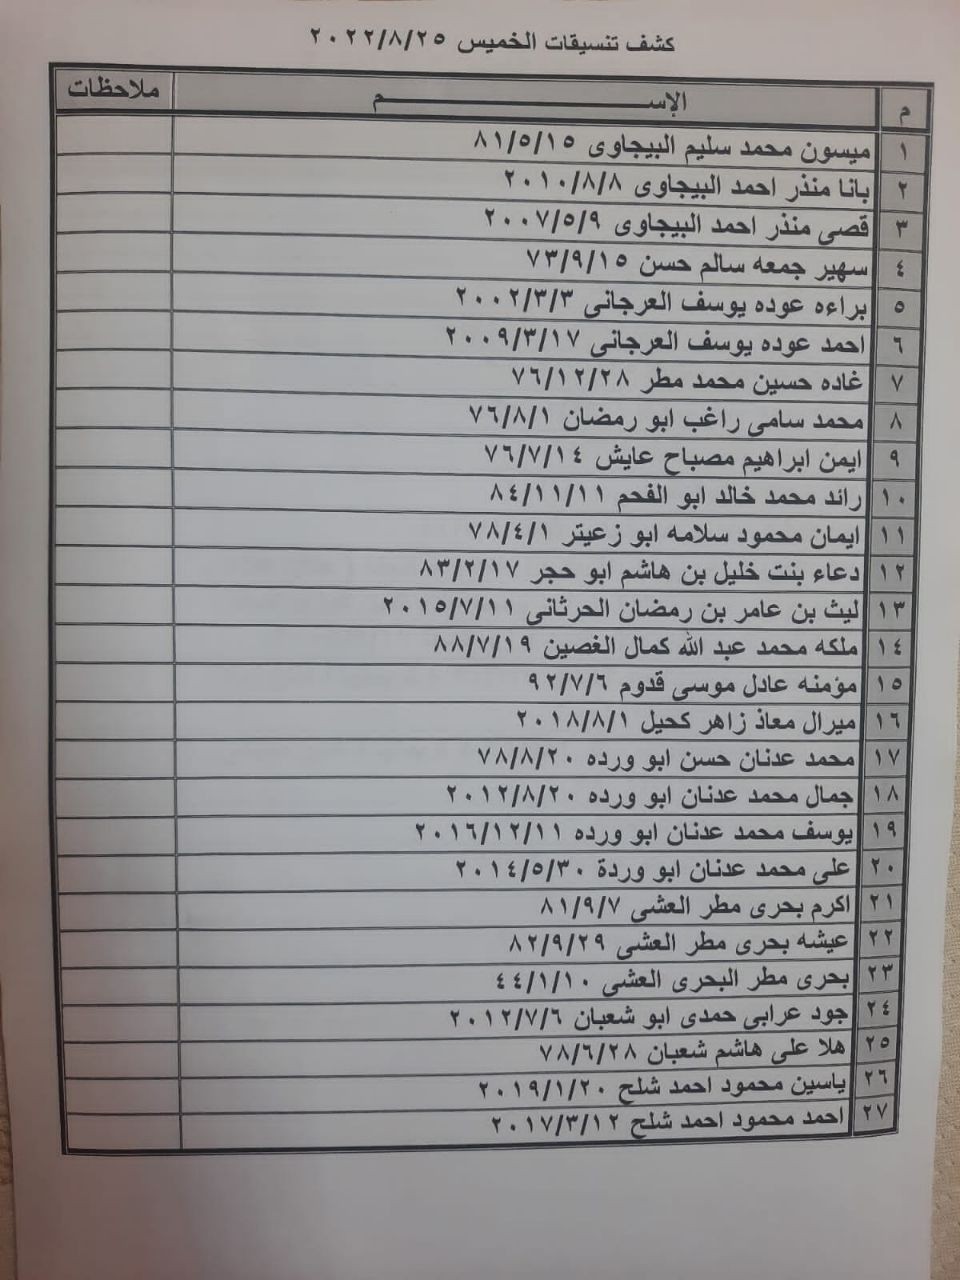 كشف تنسيقات الخميس ٢٠٢٢/٨/٢٥
م الإســـــــــم ملاحظات
١ ميسون محمد سليم البيجاوى ٨١/٥/١٥
٢ بانا منذر احمد البيجاوى ٢٠١٠/٨/٨
٣ قصى منذر احمد البيجاوى ٢٠٠٧/٥/٩
٤ سهير جمعه سالم حسن ٧٣/٩/١٥
٥ براءه عوده يوسف العرجانى ٢٠٠٢/٣/٣
٦ احمد عوده يوسف العرجانى ٢٠٠٩/٣/١٧
٧ غاده حسين محمد مطر ٧٦/١٢/٢٨
٨ محمد سامى راغب ابو رمضان ٧٦/٨/١
٩ ايمن ابراهيم مصباح عايش ٧٦/٧/١٤
١٠ رائد محمد خالد ابو الفحم ٨٤/١١/١١
١١ ايمان محمود سلامه ابو زعيتر ٧٨/٤/١
١٢ دعاء بنت خليل بن هاشم ابو حجر ٨٣/٢/١٧
١٣ ليث بن عامر بن رمضان الحرثانى ٢٠١٥/٧/١١
١٤ ملكه محمد عبد الله كمال الغصين ٨٨/٧/١٩
١٥ مؤمنه عادل موسى قدوم ٩٢/٧/٦
١٦ ميرال معاذ زاهر كحيل ٢٠١٨/٨/١
١٧ محمد عدنان حسن ابو ورده ٧٨/٨/٢٠
١٨ جمال محمد عدنان ابو ورده ٢٠١٢/٨/٢٠
١٩ يوسف محمد عدنان ابو ورده ٢٠١٦/١٢/١١
٢٠ على محمد عدنان ابو وردة ٢٠١٤/٥/٣٠
٢١ اكرم بحرى مطر العشى ٨١/٩/٧
٢٢ عيشه بحرى مطر العشى ٨٢/٩/٢٩
٢٣ بحرى مطر البحرى العشى ٤٤/١/١٠
٢٤ جود عرابى حمدى ابو شعبان ٢٠١٢/٧/٦
٢٥ هلا على هاشم شعبان ٧٨/٦/٢٨
٢٦ ياسين محمود احمد شلح ٢٠١٩/١/٢٠
٢٧ احمد محمود احمد شلح ٢٠١٧/٣/١٢